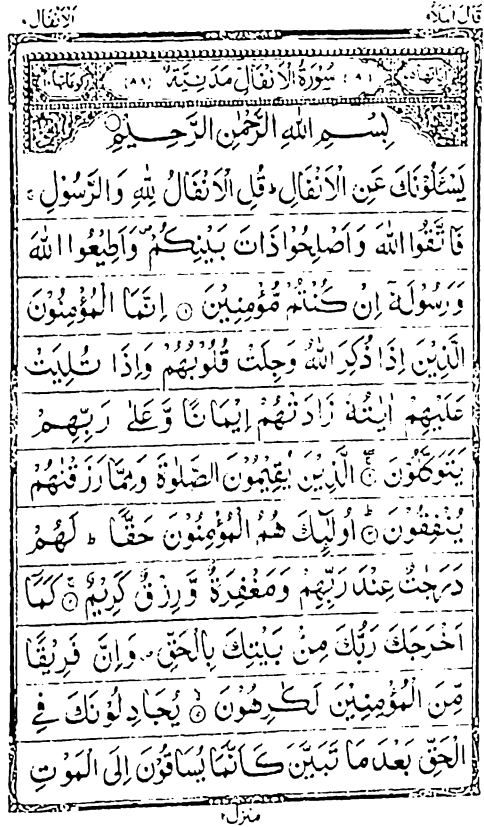 قال الملاٴ ٩
الانفال ٨
(٨) سُوْرَةُ الْاَنْفَالِ مَدَنِيَّةٌ (٨٨)
بِسْمِ اللهِ الرَّحْمٰنِ الرَّحِيْمِ
يَسْـَٔلُوْنَكَ عَنِ الْاَنْفَالِ ؕ قُلِ الْاَنْفَالُ لِلّٰهِ وَالرَّسُوْلِ ۚ
فَاتَّقُوا اللهَ وَاَصْلِحُوْا ذَاتَ بَيْنِكُمْ ۪ وَاَطِيْعُوا اللهَ
وَرَسُوْلَهٗۤ اِنْ كُنْتُمْ مُّؤْمِنِيْنَ ۝١ اِنَّمَا الْمُؤْمِنُوْنَ
الَّذِيْنَ اِذَا ذُكِرَ اللهُ وَجِلَتْ قُلُوْبُهُمْ وَاِذَا تُلِيَتْ
عَلَيْهِمْ اٰيٰتُهٗ زَادَتْهُمْ اِيْمَانًا وَّعَلٰى رَبِّهِمْ
يَتَوَكَّلُوْنَ ۝٢ الَّذِيْنَ يُقِيْمُوْنَ الصَّلٰوةَ وَمِمَّا رَزَقْنٰهُمْ
يُنْفِقُوْنَ ۝٣ اُولٰٓئِكَ هُمُ الْمُؤْمِنُوْنَ حَقًّا ؕ لَهُمْ
دَرَجٰتٌ عِنْدَ رَبِّهِمْ وَمَغْفِرَةٌ وَّرِزْقٌ كَرِيْمٌ ۝٤ كَمَاۤ
اَخْرَجَكَ رَبُّكَ مِنْۢ بَيْتِكَ بِالْحَقِّ ۪ وَاِنَّ فَرِيْقًا
مِّنَ الْمُؤْمِنِيْنَ لَكٰرِهُوْنَ ۝٥ يُجَادِلُوْنَكَ فِي
الْحَقِّ بَعْدَ مَا تَبَيَّنَ كَاَنَّمَا يُسَاقُوْنَ اِلَى الْمَوْتِ
منزل ٢